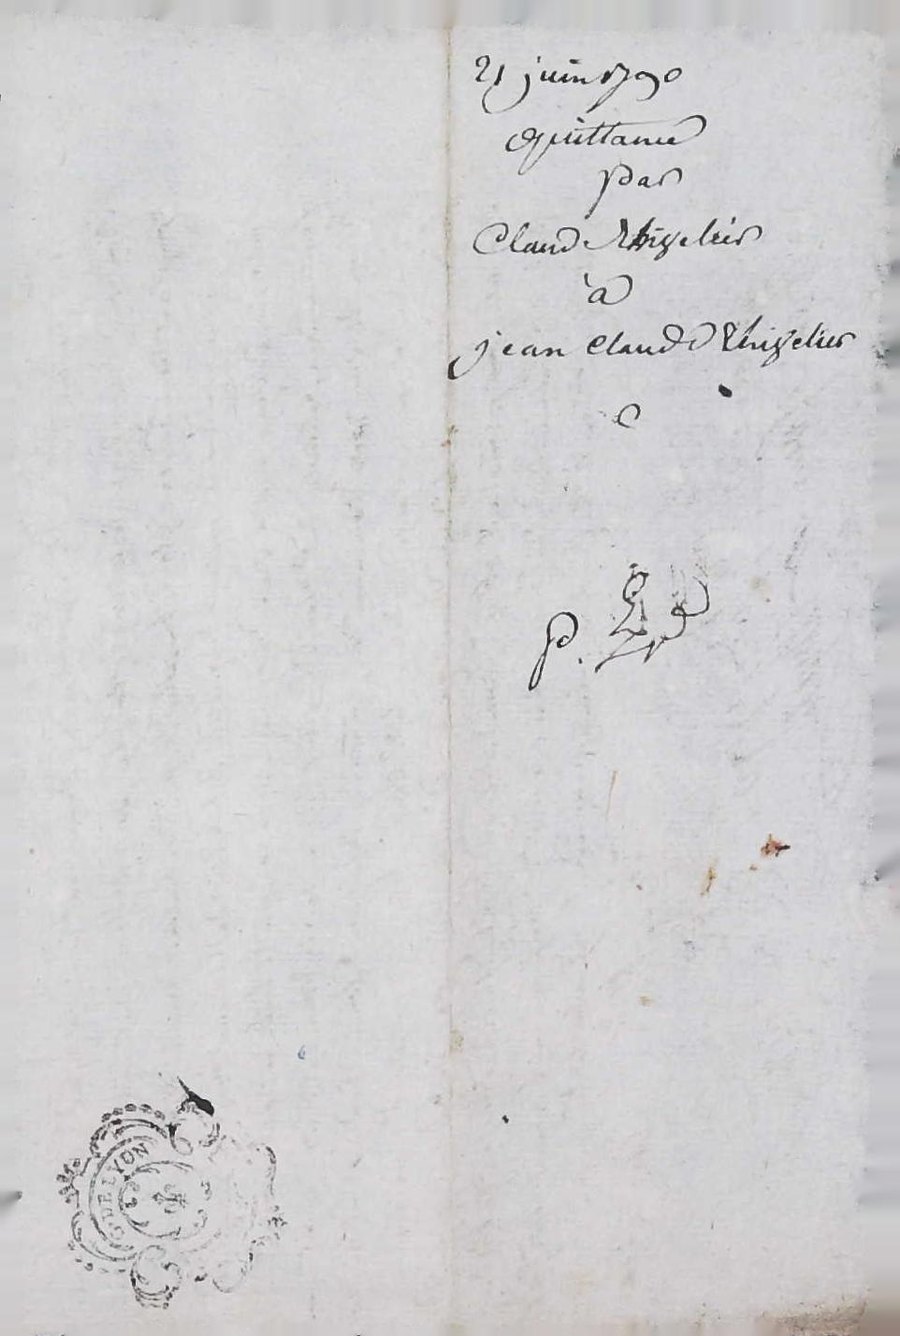 21 juin 1790
Quittance
par
Claude Thigelier
à
jean Claude Thigelier
P.
DE LYON